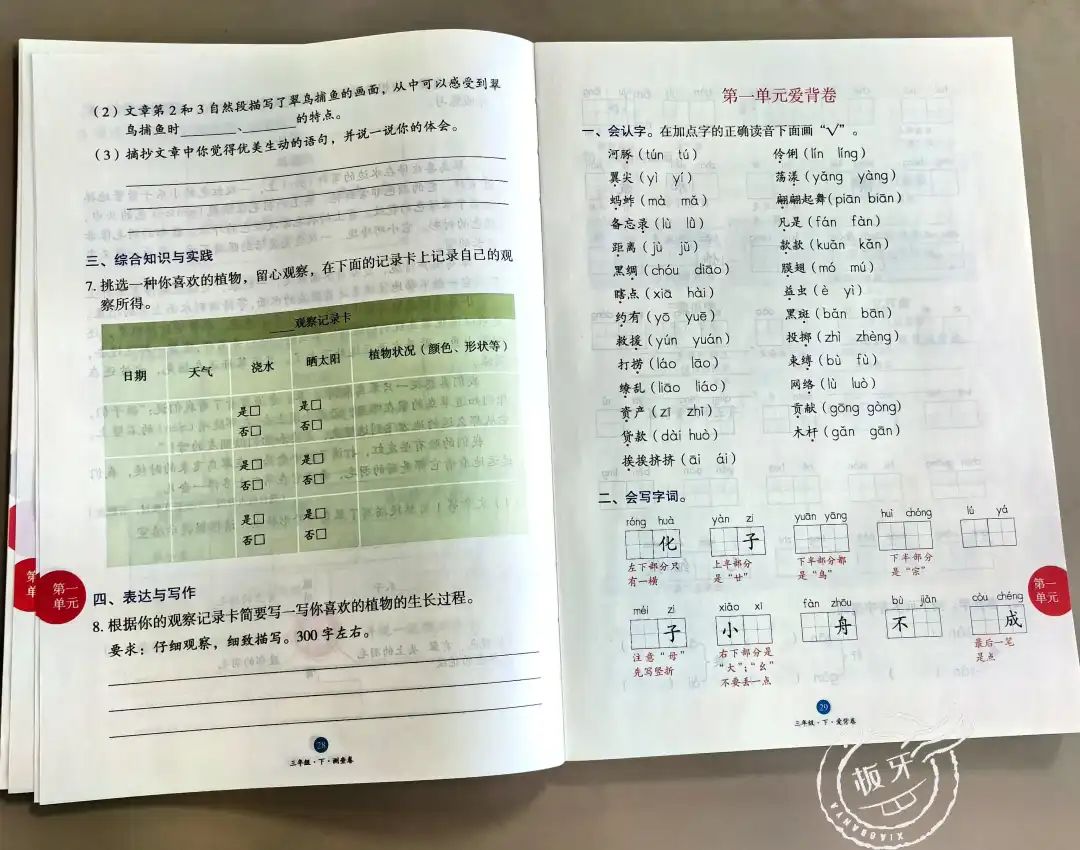 （2）文章第2和3自然段描写了翠鸟捕鱼的画面，从中可以感受到翠
鸟捕鱼时________、________的特点。
（3）摘抄文章中你觉得优美生动的语句，并说一说你的体会。
三、综合知识与实践
7. 挑选一种你喜欢的植物，留心观察，在下面的记录卡上记录自己的观
察所得。
____观察记录卡
日期 天气 浇水 晒太阳 植物状况（颜色、形状等）
是□ 是□
否□ 否□
是□ 是□
否□ 否□
是□ 是□
否□ 否□
四、表达与写作
8. 根据你的观察记录卡简要写一写你喜欢的植物的生长过程。
要求：仔细观察，细致描写。300字左右。
第一
单元
28
三年级·下·测查卷
第一单元爱背卷
一、会认字。在加点字的正确读音下面画“√”。
河豚（tún tú） 伶俐（lín líng）
翼尖（yì yí） 荡漾（yǎng yàng）
蚂蚱（mà mǎ） 翩翩起舞（piān biān）
备忘录（lù lǜ） 凡是（fán fàn）
距离（jù jǔ） 款款（kuǎn kǎn）
黑绸（chóu diāo） 膜翅（mó mú）
瞎点（xiā hài） 益虫（è yì）
约有（yō yuē） 黑斑（bǎn bān）
救援（yún yuán） 投掷（zhì zhèng）
打捞（láo lāo） 束缚（bù fù）
缭乱（liāo liáo） 网络（lù luò）
资产（zī zhī） 贡献（gōng gòng）
贷款（dài huò） 木杆（gǎn gān）
挨挨挤挤（āi ái）
二、会写字词。
róng huà yàn zi yuān yāng huì chóng lú yá
化 子
左下部分只 上半部分 下半部分都 下半部分
有一横 是“廿” 是“鸟” 是“宗”
méi zi xiǎo xī fàn zhōu bù jiàn còu chéng
子 小 舟 不 成
注意“母” 右下部分是 最后一笔
先写竖折 “大”；“幺” 是点
不要丢一点
第一
单元
29
三年级·下·爱背卷
板牙
XIAOBANYA